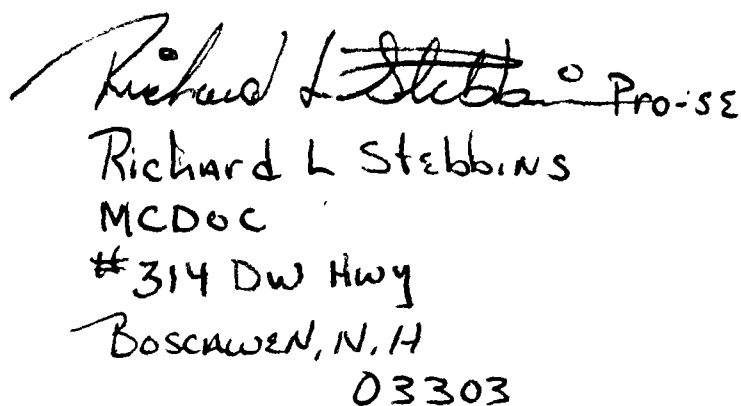 Richard L Stebbins Pro-se
Richard L Stebbins
MCDOC
#314 DW Hwy
Boscawen, N.H
03303